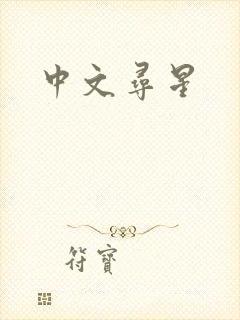 中文尋星
符寶